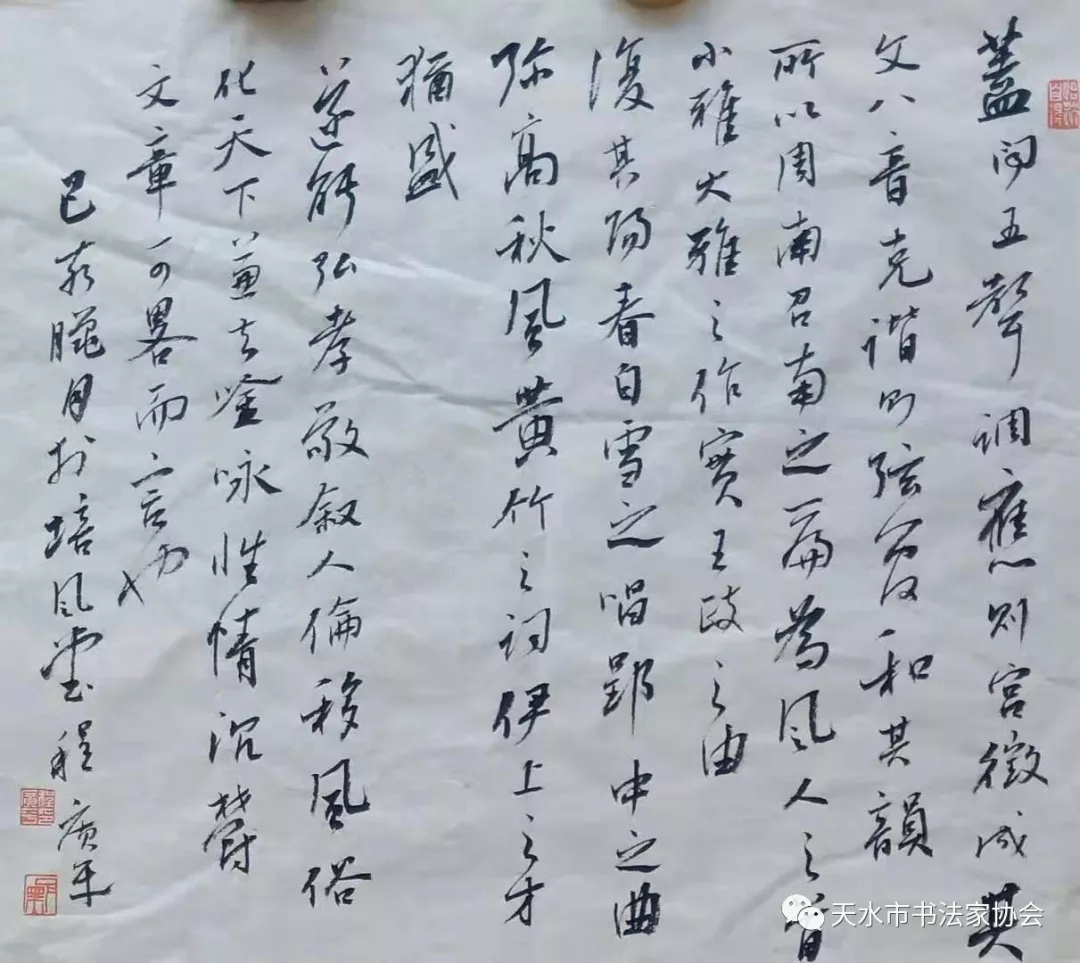 蓋闻五聲調應则宫徵成其
文八音克谐则弦管和其韻
所以周南召南之篇為風人之首
小雅大雅之作實王政之由
復其陽春白雪之唱郢中之曲
弥高秋風黄竹之词伊上之才
猶盛
遂能弘孝敬叙人倫移風俗
化天下兼夫吟咏性情沉鬱
文章可畧而言也
己亥臘月於培風堂程廣平
天水市书法家协会